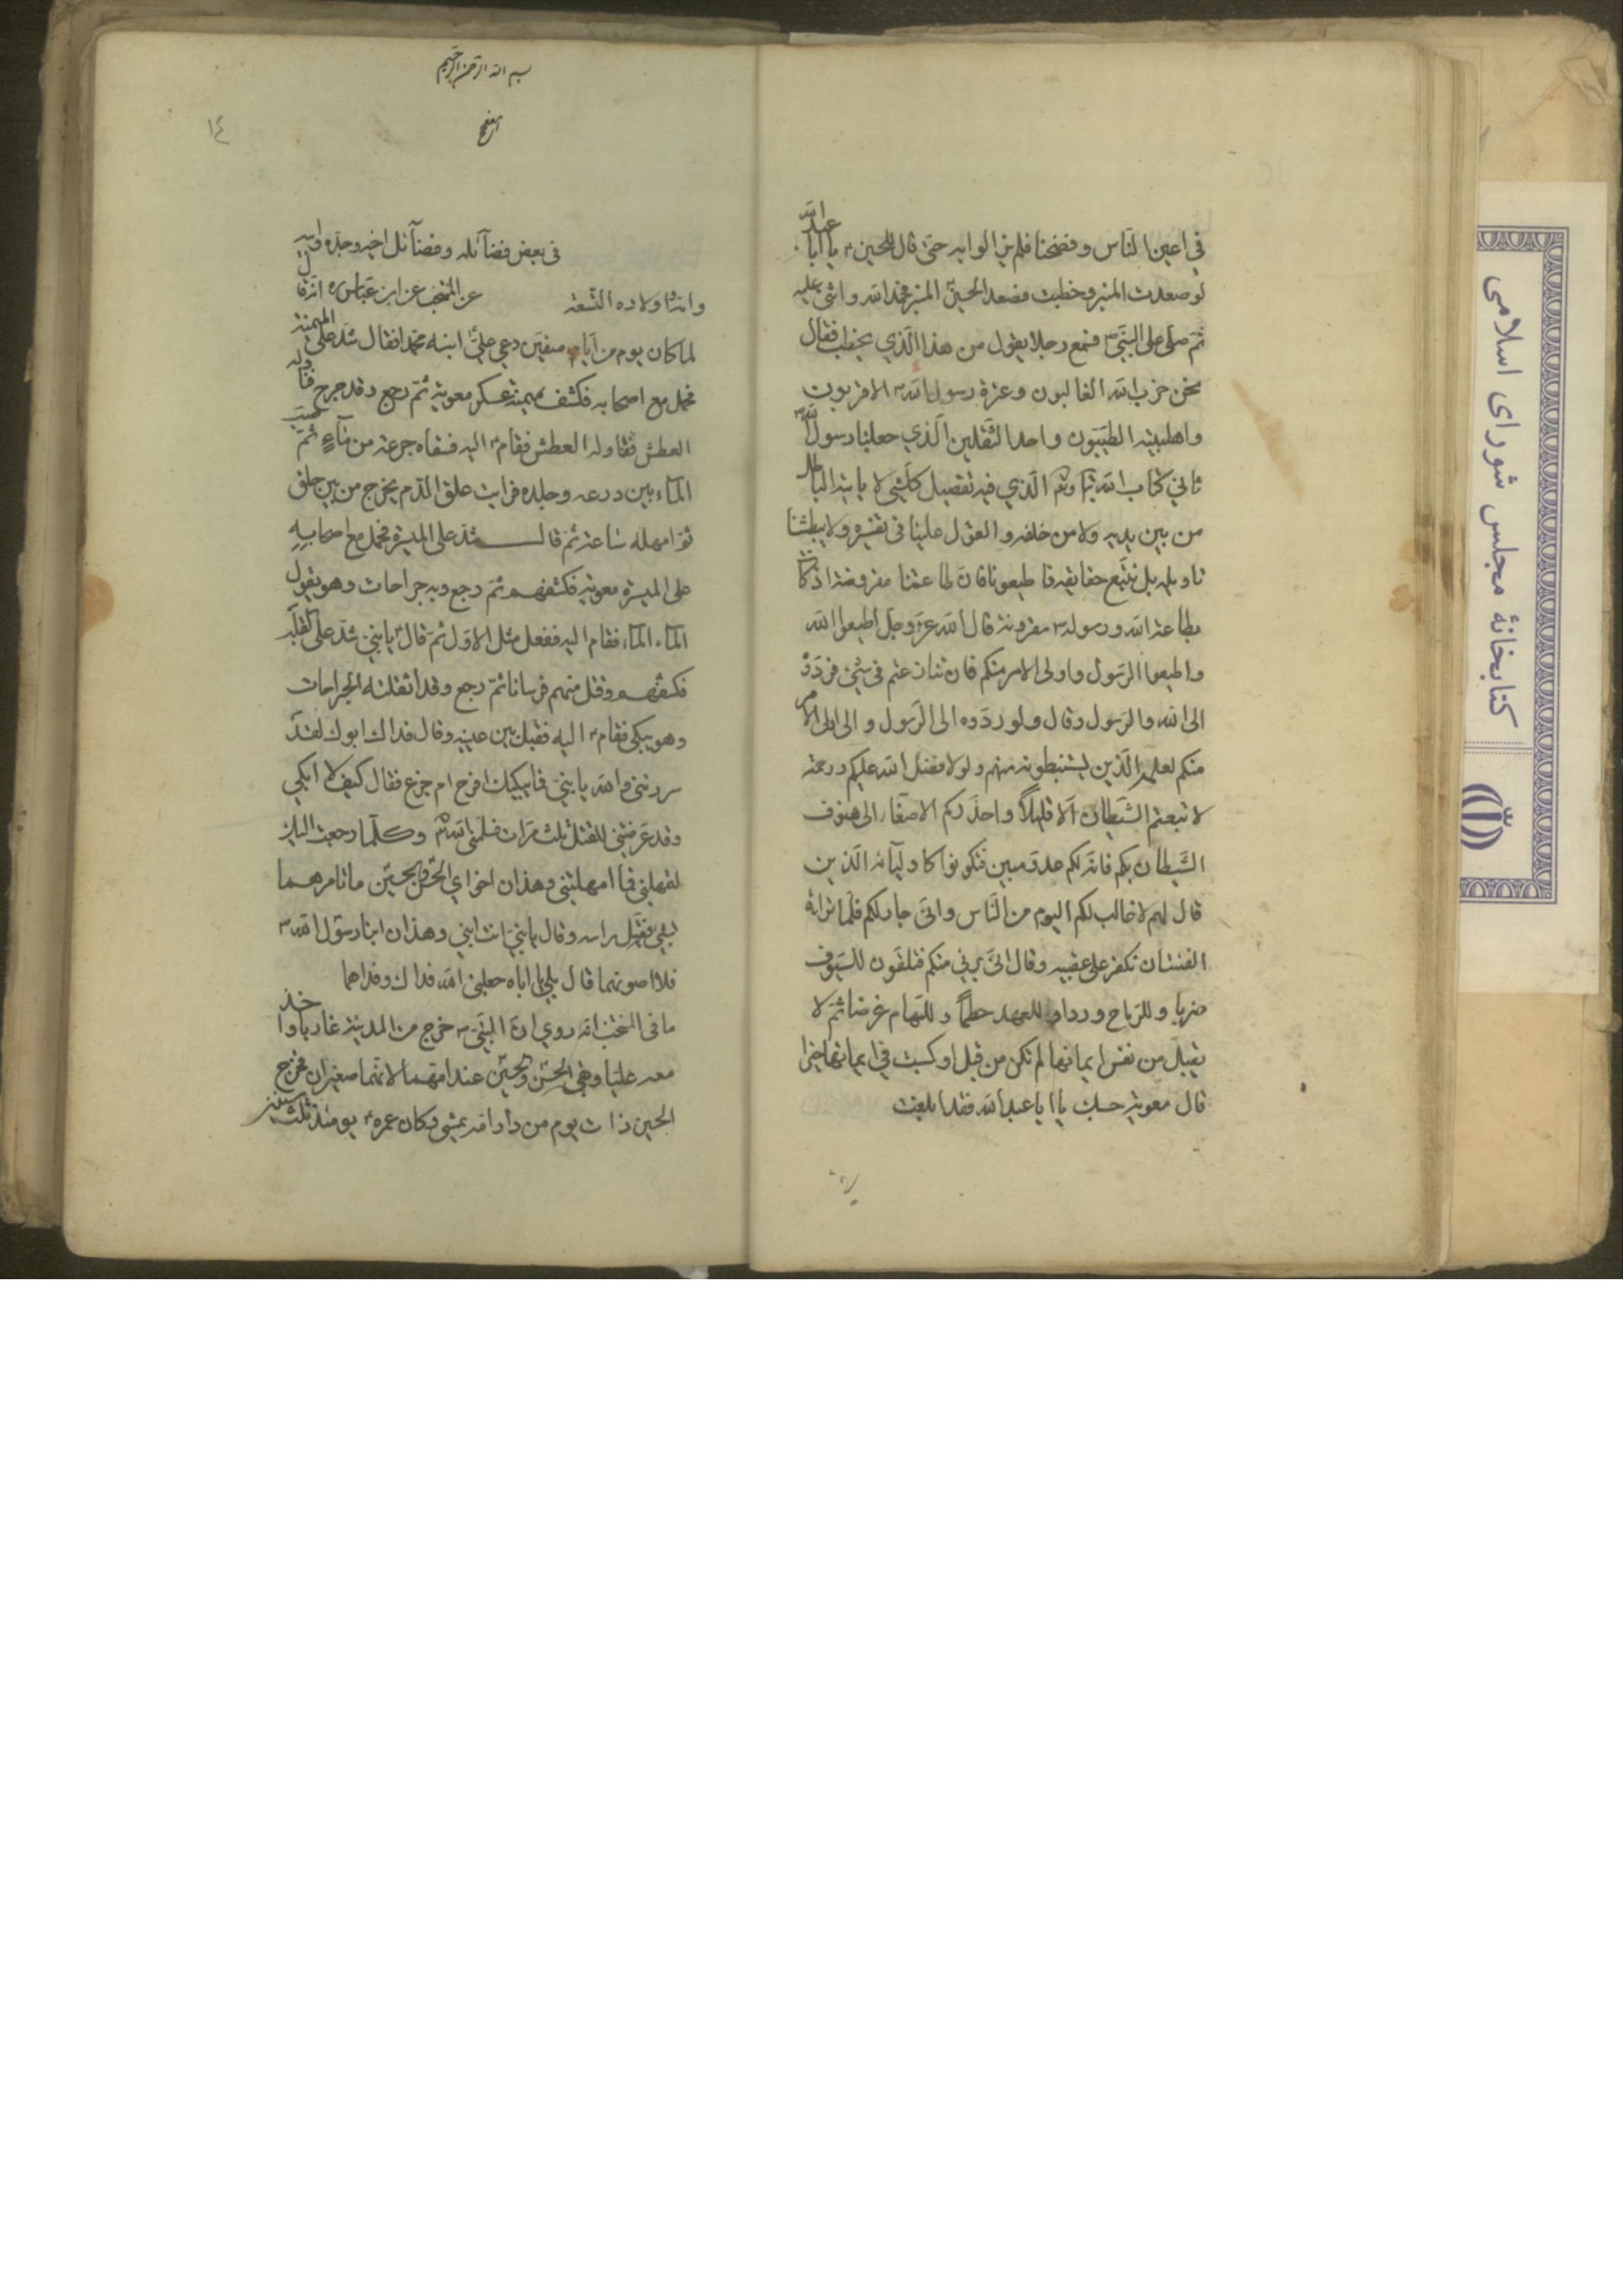 في اعين الناس و فضحنا فلم يزالوا به حتى قال للحسين ع يا ابا عبدالله
لو صعدت المنبر و خطبت فصعد الحسين ع المنبر فحمد الله و اثنى عليه
ثم صلى على النبي ص فسمع رجلا يقول من هذا الذي يخطب فقال
نحن حزب الله الغالبون و عترة رسول الله ص الاقربون
و اهلبيته الطيبون و احد الثقلين الذي جعلنا رسول الله ص
ثاني كتاب الله تبارك و تع الذي فيه تفصيل كلشئ لا ياتيه الباطل
من بين يديه ولا من خلفه و المعول علينا في تفسيره ولا يبطئنا
تاويله بل نتبع حقايقه فاطيعونا فان طاعتنا مفروضة اذ كانت
بطاعة الله و رسوله ص مقرونة قال الله عز و جل اطيعوا الله
و اطيعوا الرسول و اولى الامر منكم فان تنازعتم في شئ فردوه
الى الله و الرسول و قال و لو ردوه الى الرسول و الى اولى الامر
منكم لعلمه الذين يستنبطونه منهم و لولا فضل الله عليكم و رحمته
لاتبعتم الشيطان الا قليلاً و احذركم الاصغاء الى هتوف
الشيطان بكم فانه لكم عدو مبين فتكونوا كاوليائه الذين
قال لهم لا غالب لكم اليوم من الناس و انى جار لكم فلما تراءت
الفئتان نكص على عقبيه و قال انى برئ منكم فتلقون للسيوف
ضربا و للرماح وردا و للعمد حطماً و للسهام غرضا ثم لا
يقبل من نفس ايمانها لم تكن من قبل او كسبت في ايمانها خيرا
قال معوية حسبك يا ابا عبد الله فقد ابلغت
بسم الله الرحمن الرحيم
١٤
فى بعض فضائله و فضائل اخيه و جده و ابيه
و انه و اولاده التسعة عن المنتخب عن ابن عباس ره انه قال
لما كان يوم من ايام صفين دعى على ع ابنه محمدا فقال شد على الميمنة
فحمل مع اصحابه فكشف ميمنة عسكر معوية ثم رجع و قد جرح فقال له
العطش العطش فقام ع اليه فسقاه جرعة من ماء ثم صب
الماء بين درعه و جلده فرايت علق الدم يخرج من بين حلق
ثم امهله ساعة ثم قال شد على الميسرة فحمل مع اصحابه
على الميسرة معوية فكشفهم ثم رجع و به جراحات و هو يقول
الماء الماء فقام اليه ففعل مثل الاول ثم قال ع يا بني شد على القلب
فكشفهم و قتل منهم فرسانا ثم رجع و قد اثقلته الجراحات
و هو يبكى فقام ع اليه فقبل بين عينيه و قال فداك ابوك لقد
سررتنى و الله يا بني فما يبكيك افرح ام جزع فقال كيف لا ابكي
و قد عرضتنى للقتل ثلث مرات فسلمنى الله تع و كلما رجعت اليك
لتمهلنى فما امهلتنى و هذان اخواي الحسن و الحسين ما تامرهما
بشئ فقبل راسه و قال يا بني انت ابني و هذان ابنا رسول الله ص
فلا اصونهما قال بلى يا اباه جعلنى الله فداك و فداهما
ما فى المنتخب انه روي ان النبى ص خرج من المدينة غازيا و اخذ
معه عليا و بقي الحسن و الحسين عند امهما لانهما صغيران فخرج
الحسين ذات يوم من دار امه يمشى و كان عمره ع يومئذ ثلث سنين
كتابخانهٔ مجلس شورای اسلامی